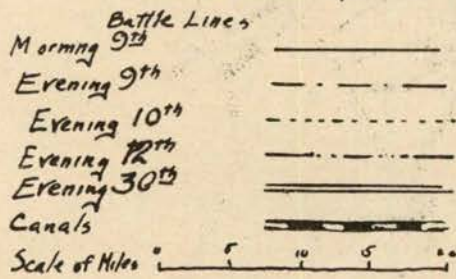 Battle Lines
Morning 9th
Evening 9th
Evening 10th
Evening 12th
Evening 30th
Canals
Scale of Miles 0 5 10 15 20